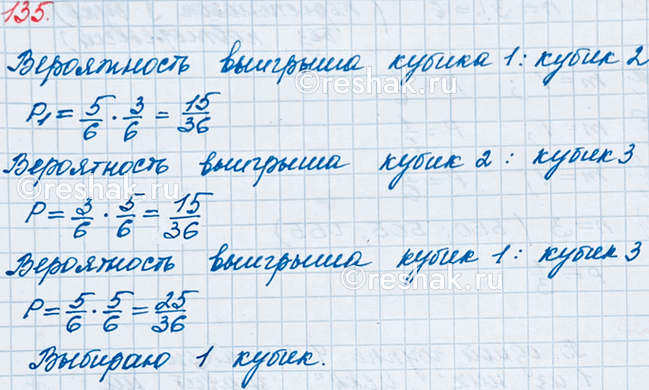 135.
Вероятность выигрыша кубика 1: кубик 2
P₁ = 5/6 · 3/6 = 15/36
Вероятность выигрыша кубик 2 : кубик 3
P = 3/6 · 5/6 = 15/36
Вероятность выигрыша кубик 1: кубик 3
P = 5/6 · 5/6 = 25/36
Выбираю 1 кубик.